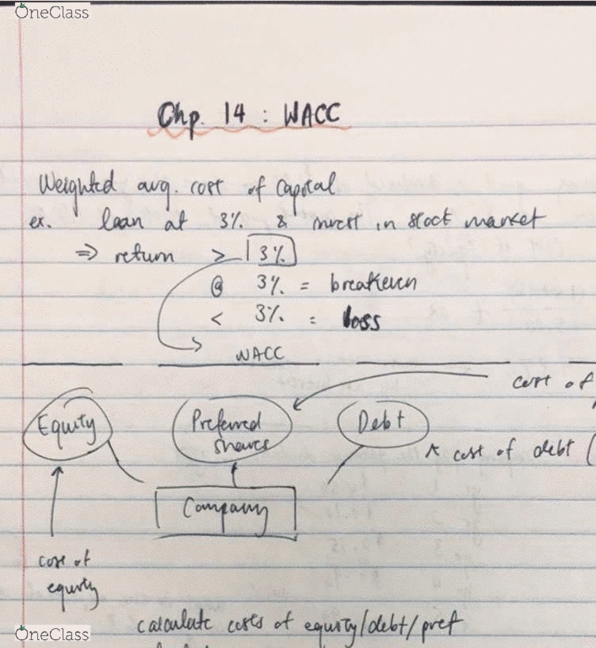 OneClass
Chp. 14 : WACC
Weighted avg. cost of Capital
ex. loan at 3% & invest in stock market
⇒ return > 3%
@ 3% = breakeven
< 3% = loss
WACC
cost of
Equity
Preferred shares
Debt
cost of debt (
Company
cost of
equity
calculate costs of equity/debt/pref
OneClass